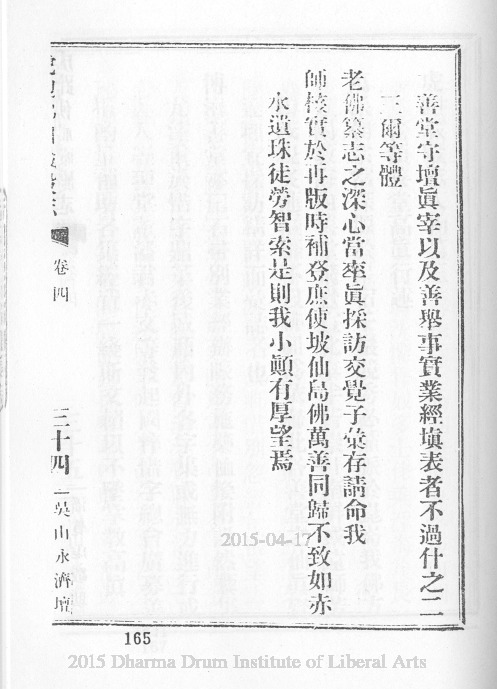 善堂守壇眞宰以及善舉事實業經塡表者不過什之二
三爾等體
老佛纂志之深心當率眞採訪交覺子彙存請命我
師核實於再版時補登庶使坡仙島佛萬善同歸不致如赤
水遺珠徒勞智索是則我小顚有厚望焉
卷四
三十四
吳山永濟壇
165
2015-04-17
2015 Dharma Drum Institute of Liberal Arts